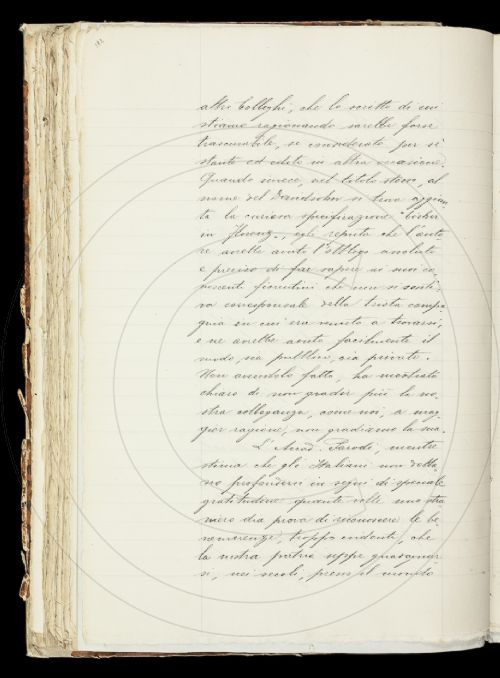 altri Colleghi, che lo scritto di cui
stiamo ragionando sarebbe forse
trascurabile, se considerato per sè
stante ed edito in altra occasione.
Quando invece, nel titolo stesso, al
nome del Davidsohn si trova aggiun-
ta la curiosa specificazione "bisher
in Florenz", egli reputa che l'auto
re avrebbe avuto l'obbligo assoluto
e preciso di far sapere ai suoi co-
noscenti fiorentini che non si senti-
va corresponsale della trista compa
gnia in cui era venuto a trovarsi,
e ne avrebbe avuto facilmente il
modo, sia pubblico, sia privato.
Non avendolo fatto, ha mostrato
chiaro di non gradir più la no-
stra colleganza, come noi, a mag
gior ragione, non gradiamo la sua.
L'Accad. Parodi, mentre
stima che gli Italiani non debba
no profondersi in segni di speciale
gratitudine quante volte uno stra
niero dia prova di riconoscere le be
nemerenze, troppo evidenti, che
la nostra patria seppe guadagnar
si, nei secoli, presso il mondo